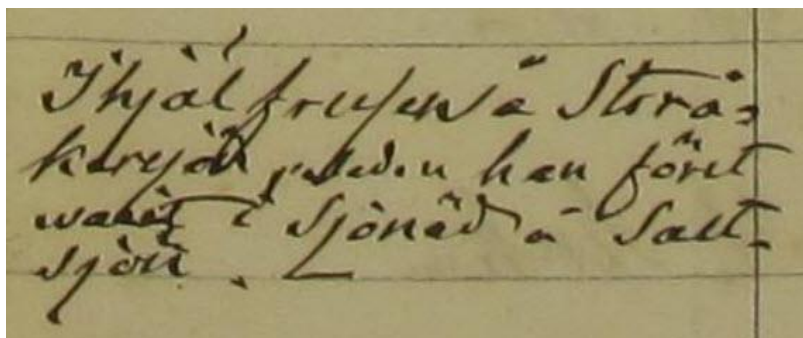 Ihjälfrusen å Storå-
kersjön, sedan han först
warit i Sjönöd å Salt-
sjön.